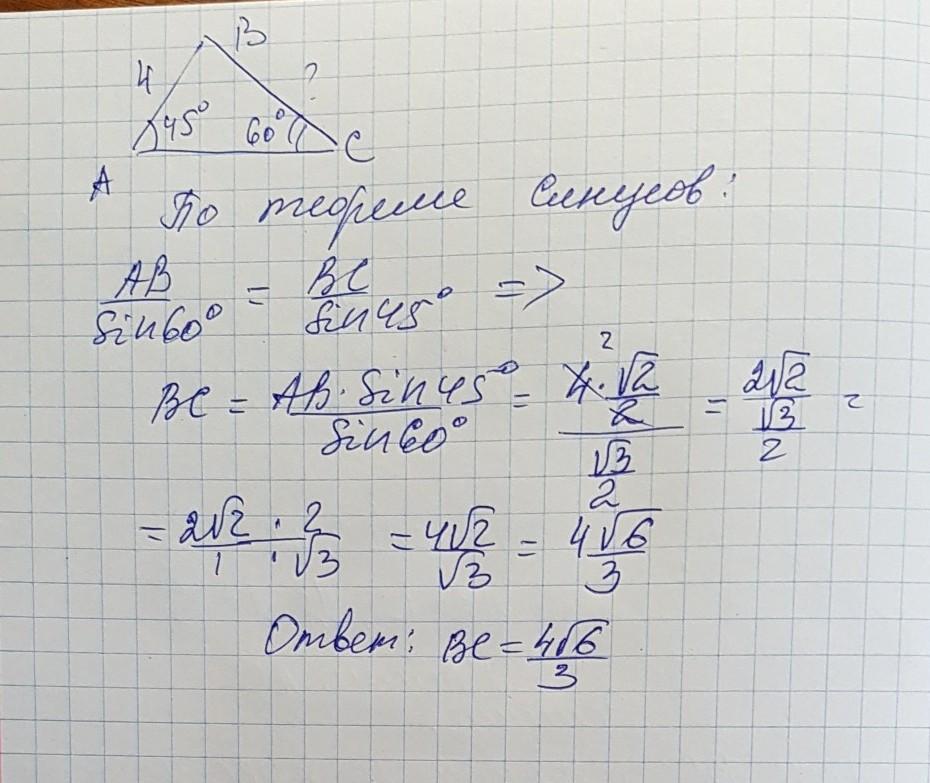 B
4 ?
45° 60°
A C
По теореме синусов:
AB/sin60° = BC/sin45° =>
BC = AB·sin45°/sin60° = (4·√2/2)/(√3/2) = 2√2/(√3/2) =
= 2√2/1 · 2/√3 = 4√2/√3 = 4√6/3
Ответ: BC = 4√6/3